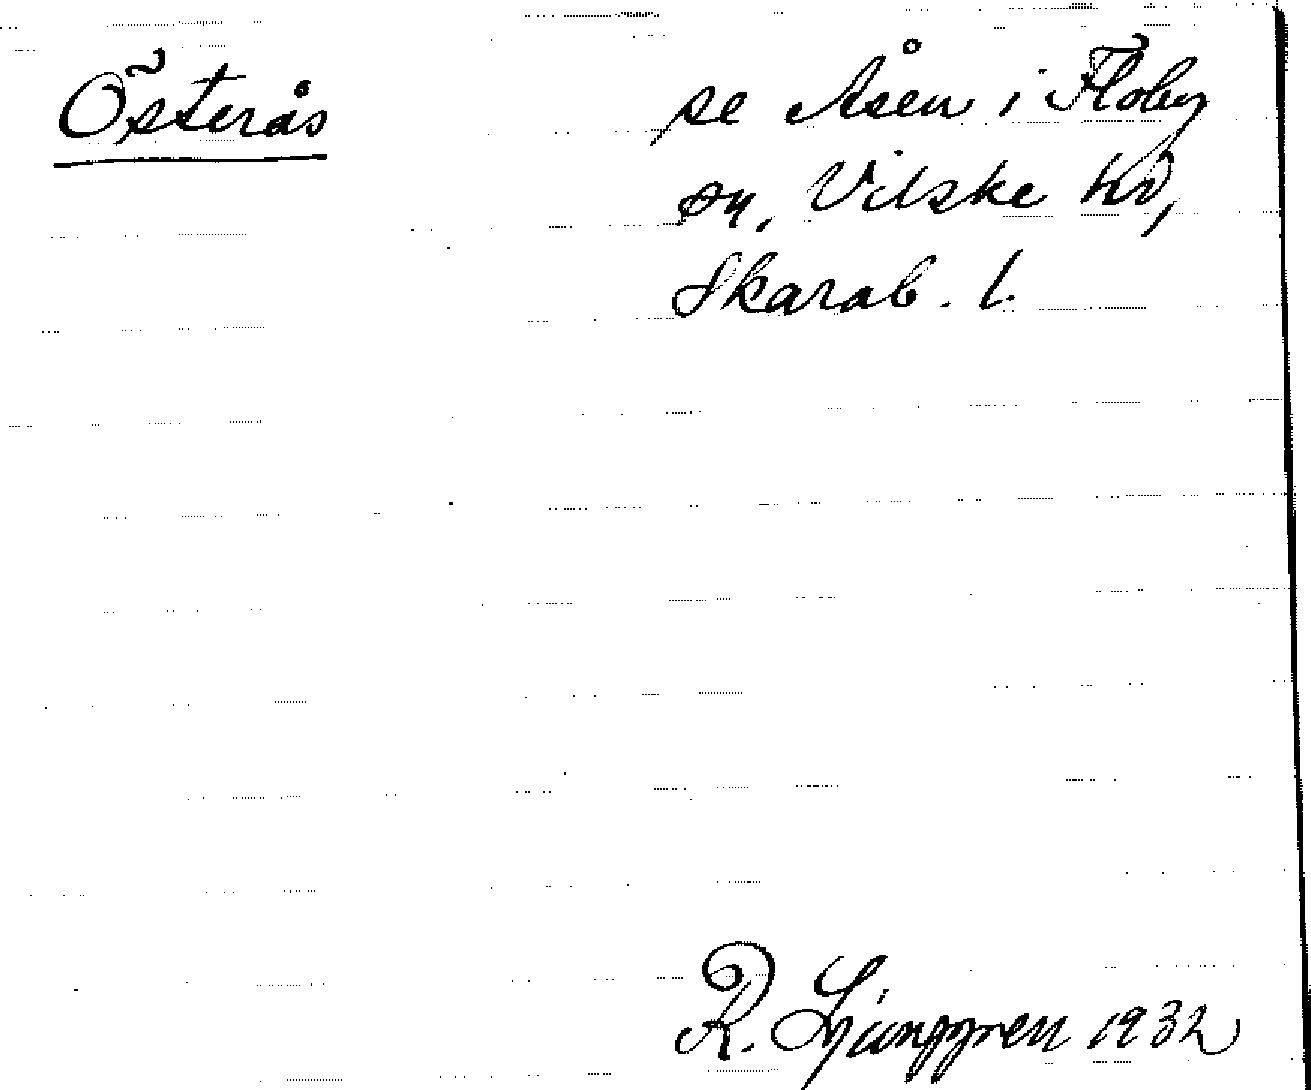 Österås
se Åsen i Floby
sn, Vilske hd,
Skarab. l.
R. Ljunggren 1932